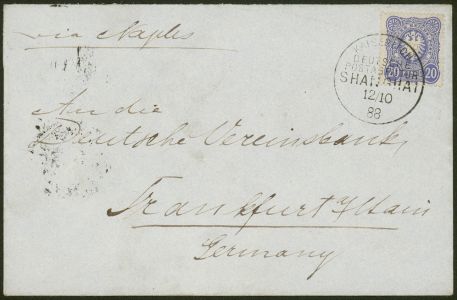 via Naples
KAISERLICH
DEUTSCHE
POSTAGENTUR
SHANGHAI
12/10
88
20 20
An die
Deutsche Vereinsbank,
Frankfurt a/Main
Germany